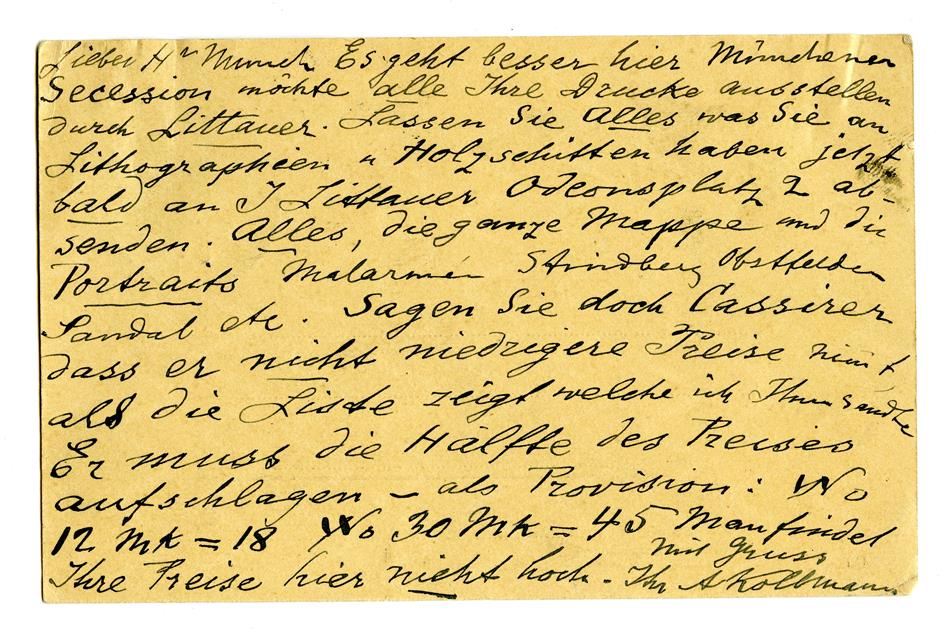 Lieber Hr Munch Es geht besser hier Münchener
Secession möchte alle Ihre Drucke ausstellen
durch Littauer. Lassen Sie Alles was Sie an
Lithographien u Holzschitten haben jetzt
bald an J Littauer Odeonsplatz 2 ab-
senden. Alles, die ganze Mappe und die
Portraits Malarmén Strindberg Obstfelden
Sandal etc. Sagen Sie doch Cassirer
dass er nicht niedrigere Preise nimt
als die Liste zeigt welche ich Ihnen sandte
Er muss die Hälfte des Preises
aufschlagen – als Provision: Wo
12 Mk = 18 Wo 30 Mk = 45 Man findet
Ihre Preise hier nicht hoch. mit Gruss
Ihr A Kollmann